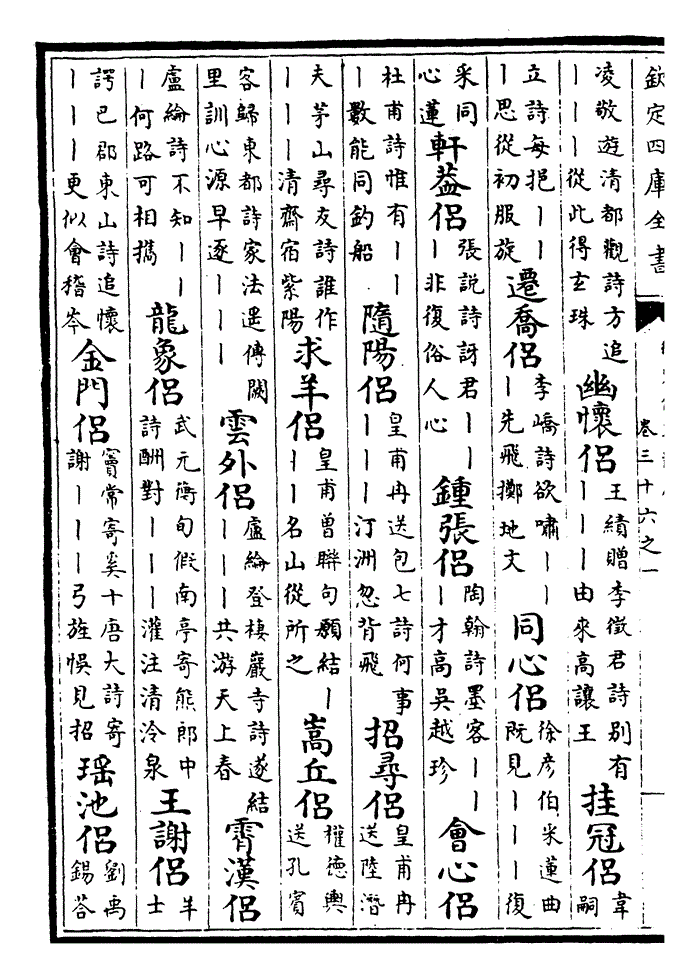 欽定四庫全書
卷三十六之一
凌敬遊清都觀詩方追｜｜｜從此得玄珠 幽懷侶 王績贈李徵君詩别有｜｜｜由來高讓王 挂冠侶 韋嗣
立詩每挹｜｜｜思從初服旋 遷喬侶 李嶠詩欲嘯｜｜｜先飛擲地文 同心侶 徐彦伯采蓮曲既見｜｜｜復
采同心蓮 軒葢侶 張說詩訝君｜｜｜非復俗人心 鍾張侶 陶翰詩墨客｜｜｜才高吳越珍 會心侶
杜甫詩惟有｜｜｜數能同釣船 隨陽侶 皇甫冉送包七詩何事｜｜｜汀洲忽背飛 招尋侶 皇甫冉送陸潛
夫茅山尋友詩誰作｜｜｜清齋宿紫陽 求羊侶 皇甫曾聯句願結｜｜｜名山從所之 嵩丘侶 權德輿送孔賓
客歸東都詩家法遥傳闕里訓心源早逐｜｜｜ 雲外侶 盧綸登棲巖寺詩遂結｜｜｜共游天上春 霄漢侶
盧綸詩不知｜｜｜何路可相攜 龍象侶 武元衡旬假南亭寄熊郎中詩酬對｜｜｜灌注清泠泉 王謝侶 羊士
諤巴郡東山詩追懷｜｜｜更似會稽岑 金門侶 竇常寄奚十唐大詩寄謝｜｜｜弓旌悞見招 瑶池侶 劉禹錫答